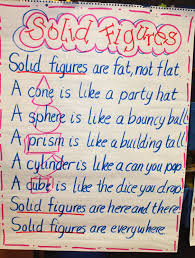 Solid Figures
Solid figures are fat, not flat.
A cone is like a party hat
A sphere is like a bouncy ball
A prism is like a building tall
A cylinder is like a can you pop
A cube is like the dice you drop
Solid figures are here and there
Solid figures are everywhere.